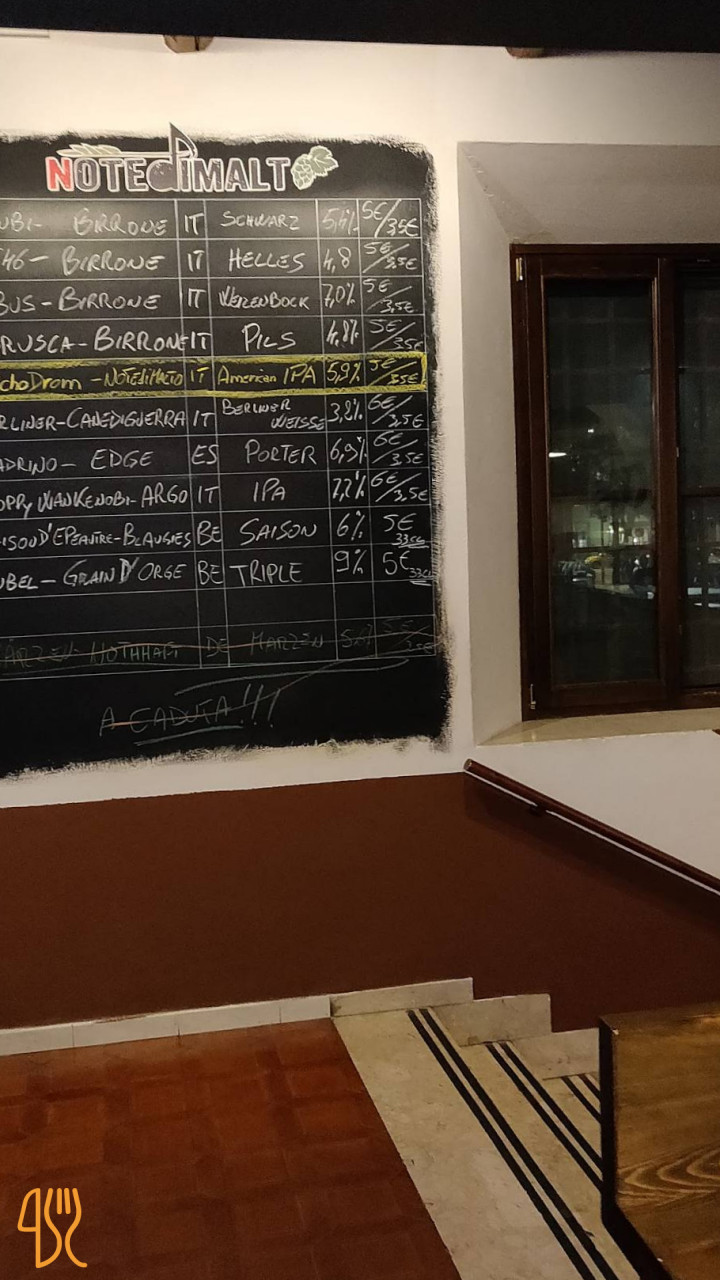 NOTEdiMALT
UBI- BIRRONE IT SCHWARZ 5,4% 5€/3,5€
46- BIRRONE IT HELLES 4,8 5€/3,5€
BUS-BIRRONE IT WEIZENBOCK 7,0% 5€/3,5€
RUSCA-BIRRONE IT PILS 4,8% 5€/3,5€
choDrom -NOTEdiMALTO IT American IPA 5,9% 5€/3,5€
RLINER-CANEDIGUERRA IT BERLINER WEISSE 3,2% 6€/3,5€
ADRINO- EDGE ES PORTER 6,9% 6€/3,5€
OPPY WANKENOBI-ARGO IT IPA 7,2% 6€/3,5€
ISOND'EPEAUTRE-BLAUGIES BE SAISON 6% 5€ 33cl
UBEL-GRAIN D'ORGE BE TRIPLE 9% 5€ 33cl
ÄRZEN HOTHHAFT DE MARZEN
A CADUTA!!!